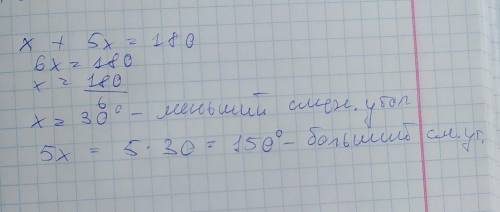 x + 5x = 180
6x = 180
x = 180
6
x = 30° - меньший смеж. угол
5x = 5 · 30 = 150° - больший см. уг.